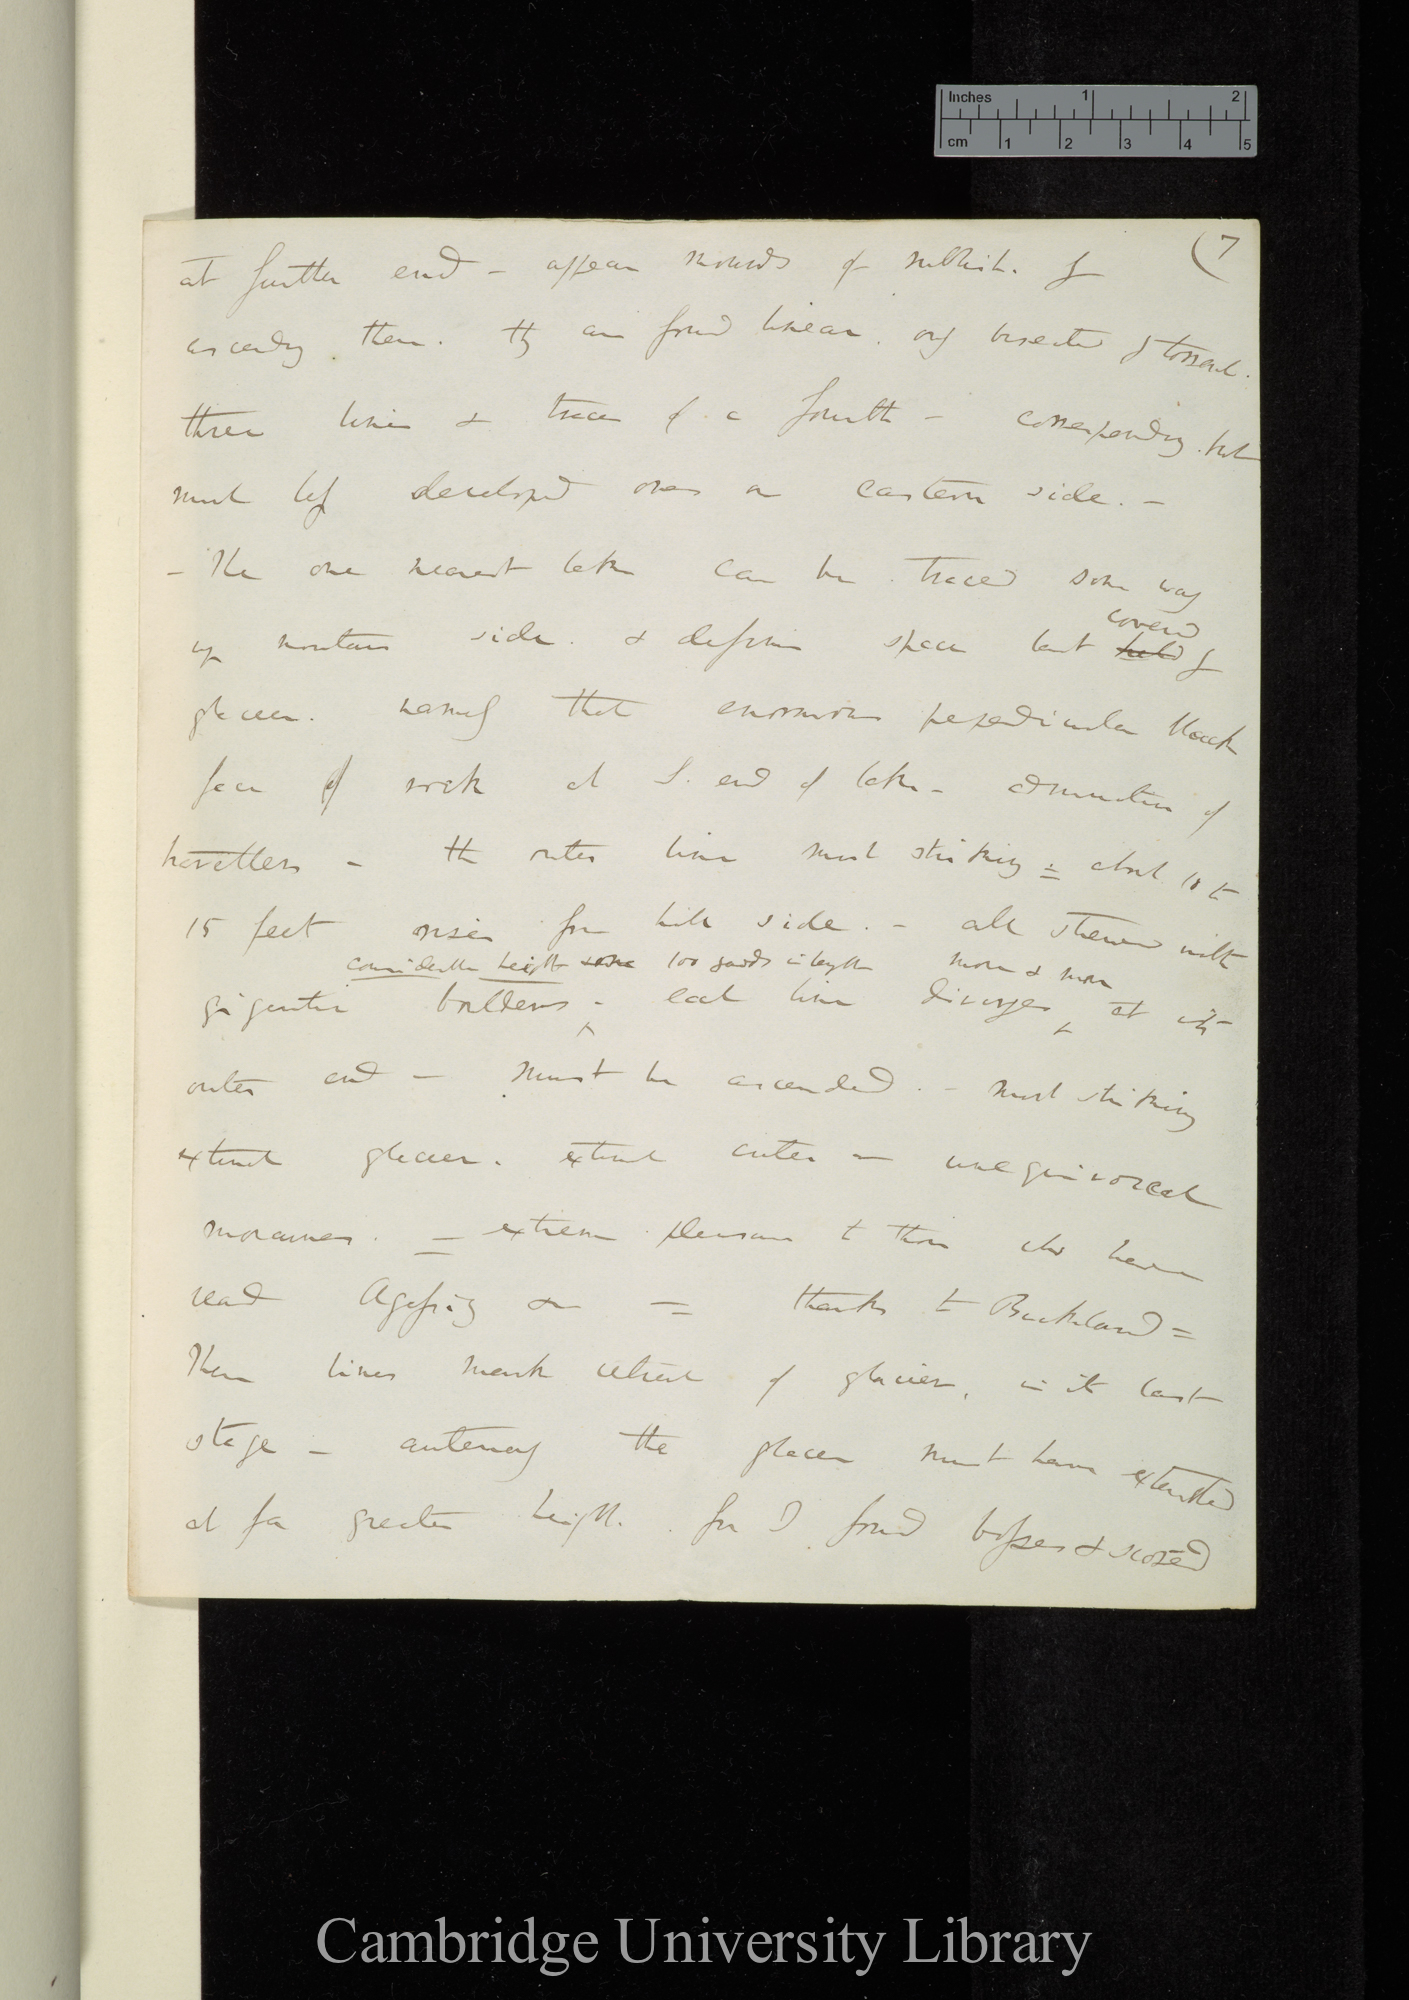 Inches 1 2
cm 1 2 3 4 5
(7
at further end – appear mounds of rubbish. If
ascending them. they are found linear. only bisected by torrent.
three lines & traces of a fourth – corresponding. but
much less developed ones on eastern side. –
– The one nearest lake can be traced some way
covered
up mountain side. & defines space last held by
glacier. namely that enormous perpendicular black
face of rock at S. end of lake – admiration of
travellers – the outer line most striking = about 10 to
15 feet rises from hill side. – all strewed with
considerable height some 100 yards in length more & more
gigantic boulders – each line diverges at its
outer end – must be ascended. – most striking
extinct glacier. extinct crater – unequivocal
moraines. = extreme pleasure to those who have
read Agassiz &c = thanks to Buckland =
These lines mark retreat of glacier, in its last
stage – anteriorly the glacier must have extended
at far greater height. for I found bosses & scored
Cambridge University Library